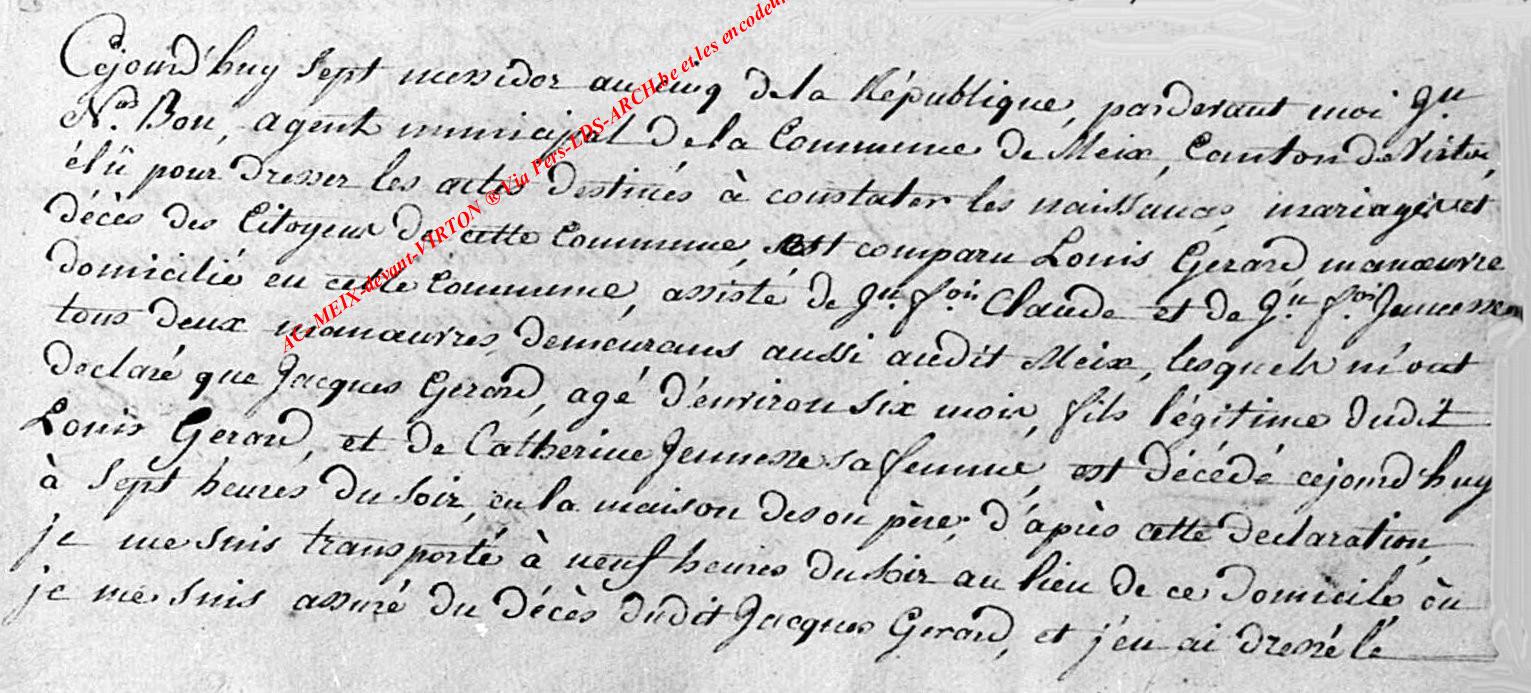 Cejourd'huy sept messidor an cinq de la République, pardevant moi Jn
Nas Bon, agent municipal de la Commune de Meix, Canton de Virton,
élû pour dresser les actes destinés à constater les naissances, mariages et
décès des Citoyens de cette Commune, est comparu Louis Gerard manœuvre
domicilié en cette Commune, assisté de Jn. fois. Claude et de Jn. fois. Jeunesse
tous deux manœuvres, demeurans aussi audit Meix, lesquels m'ont
declaré que Jacques Gerard, agé d'environ six mois, fils légitime dudit
Louis Gerard, et de Catherine Jeunesse sa femme, est décédé cejourd'huy
à sept heures du soir, en la maison de son père, d'après cette declaration,
je me suis transporté à neuf heures du soir au lieu de ce domicile où
je me suis assuré du décès dudit Jacques Gerard, et j'en ai dressé le
AC-MEIX-devant-VIRTON ® Via Pers-LDS-ARCH.be et les encodeu